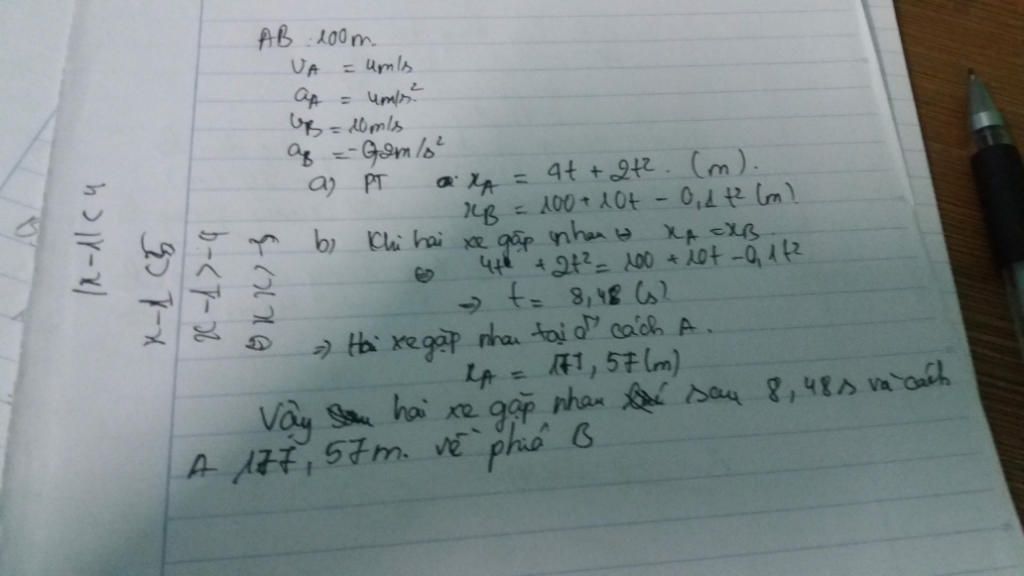 AB : 100m.
vA = 4m/s
aA = 4m/s²
vB = 10m/s
aB = -0,2m/s²
a) PT xA = 4t + 2t². (m).
xB = 100 + 10t - 0,1t² (m)
b) Khi hai xe gặp nhau ⇔ xA = xB
⇔ 4t + 2t² = 100 + 10t - 0,1t²
⇒ t = 8,48 (s)
⇒ Hai xe gặp nhau tại cách A.
xA = 177,57 (m)
Vậy hai xe gặp nhau sau 8,48s và cách
A 177,57m. về phía B
|x-1| < 4
x-1
x-1 > -4